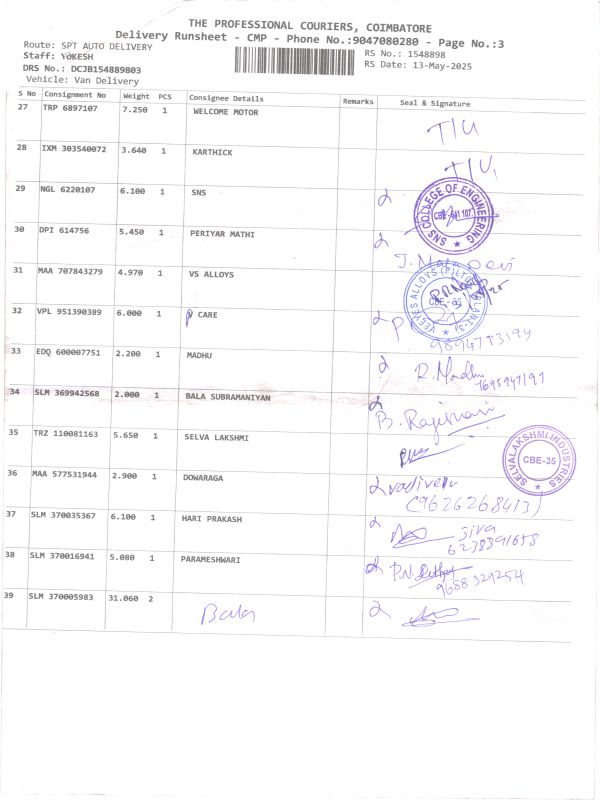 THE PROFESSIONAL COURIERS, COIMBATORE
Delivery Runsheet - CMP - Phone No.:9047080280 - Page No.:3
Route: SPT AUTO DELIVERY
Staff: YOKESH
DRS No.: DCJB154889803
Vehicle: Van Delivery
RS No.: 1548898
RS Date: 13-May-2025
S No Consignment No Weight PCS Consignee Details Remarks Seal & Signature
27 TRP 6897107 7.250 1 WELCOME MOTOR T/U
28 IXM 303540072 3.640 1 KARTHICK T/U
29 NGL 6220107 6.100 1 SNS
SNS COLLEGE OF ENGINEERING
CBE-641 107.
30 DPI 614756 5.450 1 PERIYAR MATHI
31 MAA 707843279 4.970 1 VS ALLOYS
CBE-35
32 VPL 951390389 6.000 1 V CARE
33 EDQ 600007751 2.200 1 MADHU R. Madhu
34 SLM 369942568 2.000 1 BALA SUBRAMANIYAN
35 TRZ 110081163 5.650 1 SELVA LAKSHMI
SELVALAKSHMI INDUSTRIES
CBE-35
36 MAA 577531944 2.900 1 DOWARAGA vadivelu
(9626268413)
37 SLM 370035367 6.100 1 HARI PRAKASH siva
6238391658
38 SLM 370016941 5.080 1 PARAMESHWARI
9688329254
39 SLM 370005983 31.060 2 Bala